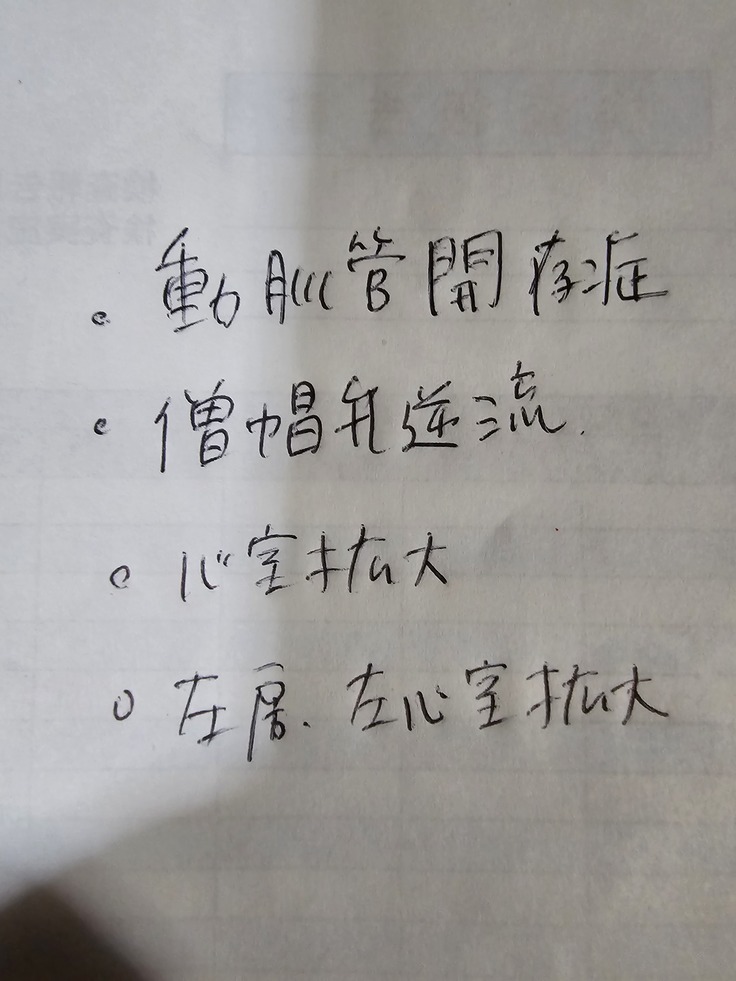 。動脈管開存症
・僧帽弁逆流.
。心室拡大
。左房、左心室拡大